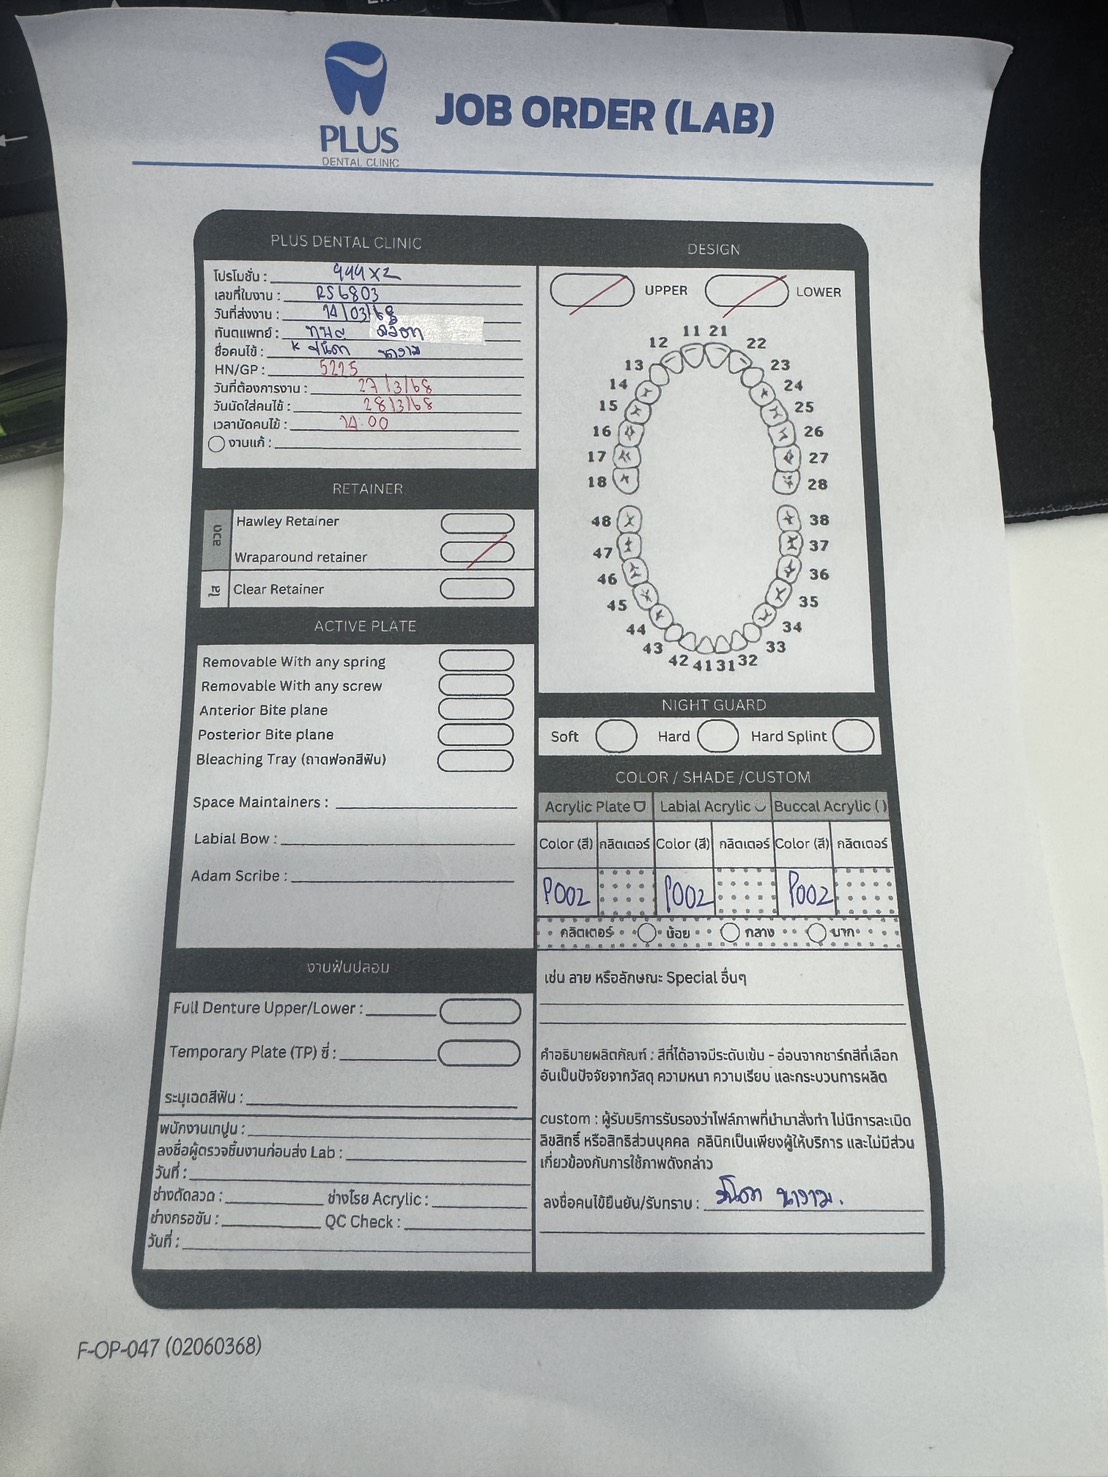 PLUS
DENTAL CLINIC
JOB ORDER (LAB)
PLUS DENTAL CLINIC
โปรโมชั่น : 999 x 2
เลขที่ใบงาน : RS6803
วันที่ส่งงาน : 14/03/68
ทันตแพทย์ :
ชื่อคนไข้ :
HN/GP : 5225
วันที่ต้องการงาน : 27/3/68
วันนัดใส่คนไข้ : 28/3/68
เวลานัดคนไข้ : 14:00
งานแก้ :
RETAINER
ลวด
Hawley Retainer
Wraparound retainer
ใส
Clear Retainer
ACTIVE PLATE
Removable With any spring
Removable With any screw
Anterior Bite plane
Posterior Bite plane
Bleaching Tray (ถาดฟอกสีฟัน)
Space Maintainers :
Labial Bow :
Adam Scribe :
งานฟันปลอม
Full Denture Upper/Lower :
Temporary Plate (TP) ซี่ :
ระบุเฉดสีฟัน :
พนักงานเทปูน :
ลงชื่อผู้ตรวจชิ้นงานก่อนส่ง Lab :
วันที่ :
ช่างดัดลวด : ช่างโรย Acrylic :
ช่างกรอขัน : QC Check :
วันที่ :
DESIGN
UPPER LOWER
11 21
12 22
13 23
14 24
15 25
16 26
17 27
18 28
48 38
47 37
46 36
45 35
44 34
43 33
42 41 31 32
NIGHT GUARD
Soft Hard Hard Splint
COLOR / SHADE /CUSTOM
Acrylic Plate Labial Acrylic Buccal Acrylic ( )
Color (สี) กลิตเตอร์ Color (สี) กลิตเตอร์ Color (สี) กลิตเตอร์
P002 P002 P002
กลิตเตอร์ น้อย กลาง มาก
เช่น ลาย หรือลักษณะ Special อื่นๆ
คำอธิบายผลิตภัณฑ์ : สีที่ได้อาจมีระดับเข้ม - อ่อนจากชาร์กสีที่เลือก
อันเป็นปัจจัยจากวัสดุ ความหนา ความเรียบ และกระบวนการผลิต
custom : ผู้รับบริการรับรองว่าไฟล์ภาพที่นำมาสั่งทำ ไม่มีการละเมิด
ลิขสิทธิ์ หรือสิทธิส่วนบุคคล คลินิกเป็นเพียงผู้ให้บริการ และไม่มีส่วน
เกี่ยวข้องกับการใช้ภาพดังกล่าว
ลงชื่อคนไข้ยืนยัน/รับทราบ :
F-OP-047 (02060368)